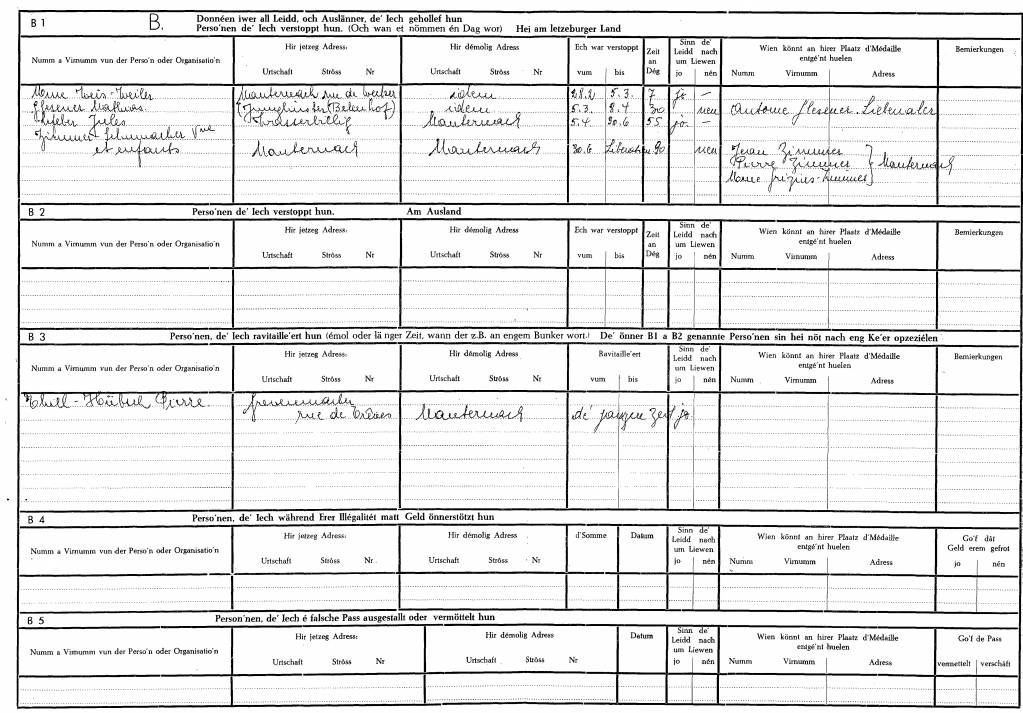 B 1 B. Donnéen iwer all Leidd, och Auslänner, de' Iech gehollef hun
Perso'nen de' Iech verstoppt hun. (Och wan et nömmen én Dag wor) Hei am letzeburger Land
Numm a Virnumm vun der Perso'n oder Organisatio'n Hir jetzeg Adress: Hir démolig Adress: Ech war verstoppt Zeit an Dég Sinn de' Leidd nach um Liewen Wien könnt an hirer Plaatz d'Médaille entgé'nt huelen Bemierkungen
Urtschaft Ströss Nr Urtschaft Ströss Nr vum bis jo nén Numm Virnumm Adress
Mme Weis-Weiler Manternach rue de Wecker idem 28.2 5.3. 7 jo –
Flesener Mathias. (Junglinster Beienhof) idem 5.3. 8.4 30 nen Antoine Flesener
Jules Wasserbillig Manternach 5.4 30.6 55 jo. –
Zimmer-Schumacher Vve
et enfants Manternach Manternach 30.6 Liberation 90 nen Jean Zimmer
Pierre Zimmer } Manternach
Mme
B 2 Perso'nen de' Iech verstoppt hun. Am Ausland
Numm a Virnumm vun der Perso'n oder Organisatio'n Hir jetzeg Adress: Hir démolig Adress: Ech war verstoppt Zeit an Dég Sinn de' Leidd nach um Liewen Wien könnt an hirer Plaatz d'Médaille entgé'nt huelen Bemierkungen
Urtschaft Ströss Nr Urtschaft Ströss Nr vum bis jo nén Numm Virnumm Adress
B 3 Perso'nen, de' Iech ravitaille'ert hun (émol oder länger Zeit, wann der z.B. an engem Bunker wort.) De' önner B1 a B2 genannte Perso'nen sin hei nöt nach eng Ke'er opzeziélen
Numm a Virnumm vun der Perso'n oder Organisatio'n Hir jetzeg Adress: Hir démolig Adress: Ravitaille'ert Sinn de' Leidd nach um Liewen Wien könnt an hirer Plaatz d'Médaille entgé'nt huelen Bemierkungen
Urtschaft Ströss Nr Urtschaft Ströss Nr vum bis jo nén Numm Virnumm Adress
Pierre. Grevenmacher
rue de Trèves Manternach dé ganzen Zeit jo.
B 4 Perso'nen, de' Iech während Erer Illégalitét matt Geld önnerstötzt hun
Numm a Virnumm vun der Perso'n oder Organisatio'n Hir jetzeg Adress: Hir démolig Adress: d'Somme Datum Sinn de' Leidd nach um Liewen Wien könnt an hirer Plaatz d'Médaille entgé'nt huelen Go'f dât Geld erem gefrot
Urtschaft Ströss Nr Urtschaft Ströss Nr jo nén Numm Virnumm Adress jo nén
B 5 Person'nen, de' Iech é falsche Pass ausgestallt oder vermöttelt hun
Numm a Virnumm vun der Perso'n oder Organisatio'n Hir jetzeg Adress: Hir démolig Adress: Datum Sinn de' Leidd nach um Liewen Wien könnt an hirer Plaatz d'Médaille entgé'nt huelen Go'f de Pass
Urtschaft Ströss Nr Urtschaft Ströss Nr jo nén Numm Virnumm Adress vermettelt verschâft